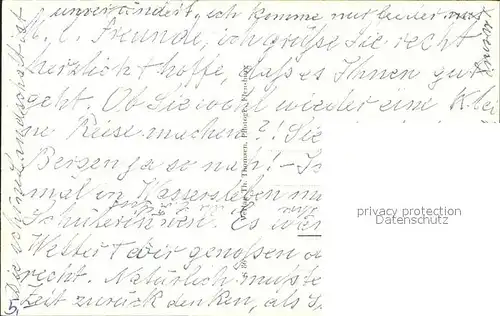 unverändert, ich komme nur leider
M. l. Freunde, ich grüße Sie recht
herzlich + hoffe, daß es Ihnen gut
geht. Ob Sie wohl wieder eine Klei
ne Reise machen?! Sie
Reisen ja so nah! – Ic
mal in Wassersleben mi
Schülerinnen. Es war
Wetter + wir genossen
recht. Natürlich mußte
Zeit zurück denken, als S
Die schöne Landschaft ist
Verlag Th. Thomsen, Photogr., Flensburg
privacy protection
Datenschutz